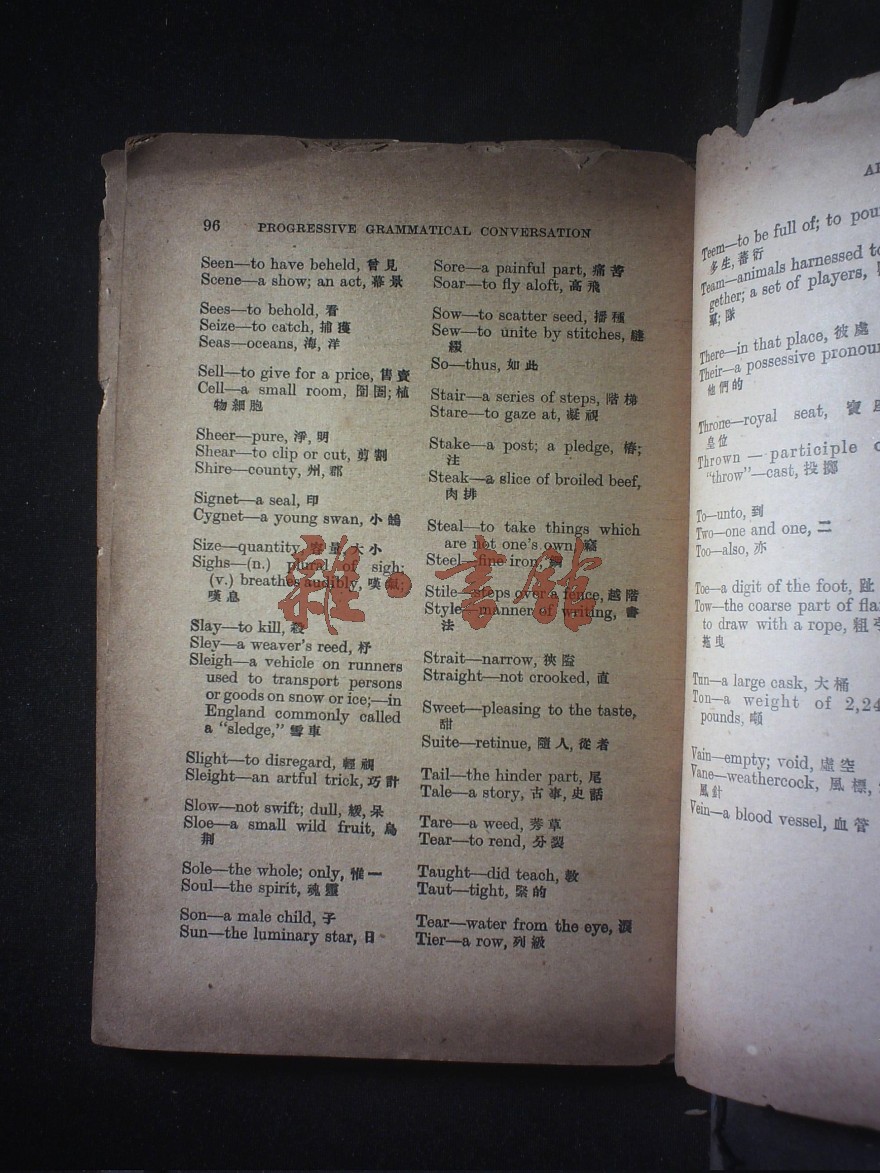 96 PROGRESSIVE GRAMMATICAL CONVERSATION
Seen—to have beheld, 曾見
Scene—a show; an act, 幕景
Sees—to behold, 看
Seize—to catch, 捕獲
Seas—oceans, 海, 洋
Sell—to give for a price, 售賣
Cell—a small room, 囹圄; 植
物細胞
Sheer—pure, 淨, 明
Shear—to clip or cut, 剪割
Shire—county, 州, 郡
Signet—a seal, 印
Cygnet—a young swan, 小鵠
Size—quantity, 容量, 大小
Sighs—(n.) plural of sigh;
(v.) breathes audibly, 嘆氣;
嘆息
Slay—to kill, 殺
Sley—a weaver's reed, 杼
Sleigh—a vehicle on runners
used to transport persons
or goods on snow or ice;—in
England commonly called
a "sledge," 雪車
Slight—to disregard, 輕視
Sleight—an artful trick, 巧計
Slow—not swift; dull, 緩, 呆
Sloe—a small wild fruit, 烏
荆
Sole—the whole; only, 惟一
Soul—the spirit, 魂靈
Son—a male child, 子
Sun—the luminary star, 日
Sore—a painful part, 痛苦
Soar—to fly aloft, 高飛
Sow—to scatter seed, 播種
Sew—to unite by stitches, 縫
綴
So—thus, 如此
Stair—a series of steps, 階梯
Stare—to gaze at, 凝視
Stake—a post; a pledge, 樁;
注
Steak—a slice of broiled beef,
肉排
Steal—to take things which
are not one's own, 竊
Steel—fine iron, 鋼
Stile—steps over a fence, 越階
Style—manner of writing, 書
法
Strait—narrow, 狹隘
Straight—not crooked, 直
Sweet—pleasing to the taste,
甜
Suite—retinue, 隨人, 從者
Tail—the hinder part, 尾
Tale—a story, 古事, 史話
Tare—a weed, 莠草
Tear—to rend, 分裂
Taught—did teach, 敎
Taut—tight, 緊的
Tear—water from the eye, 淚
Tier—a row, 列級
雜·書館
Teem—to be full of; to
多生, 蕃衍
Team—animals harnessed
gether; a set of players,
羣; 隊
There—in that place, 彼處
Their—a possessive
他們的
Throne—royal seat, 寶
皇位
Thrown—participle
"throw"—cast, 投擲
To—unto, 到
Two—one and one, 二
Too—also, 亦
Toe—a digit of the foot, 趾
Tow—the coarse part of
to draw with a rope, 粗
拖曳
Tun—a large cask, 大桶
Ton—a weight of
pounds, 噸
Vain—empty; void, 虛空
Vane—weathercock, 風標,
風針
Vein—a blood vessel, 血管